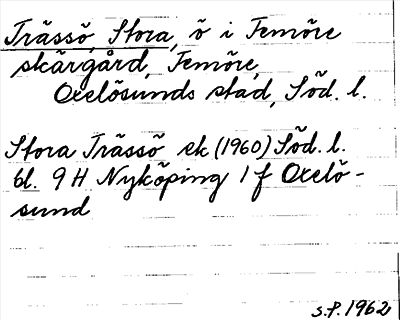 Trässö, Stora, ö i Femöre
skärgård, Femöre,
Oxelösunds stad, Söd. l.
Stora Trässö ek (1960) Söd. l.
bl. 9 H Nyköping 1 f Oxelö-
sund
s.f. 1962